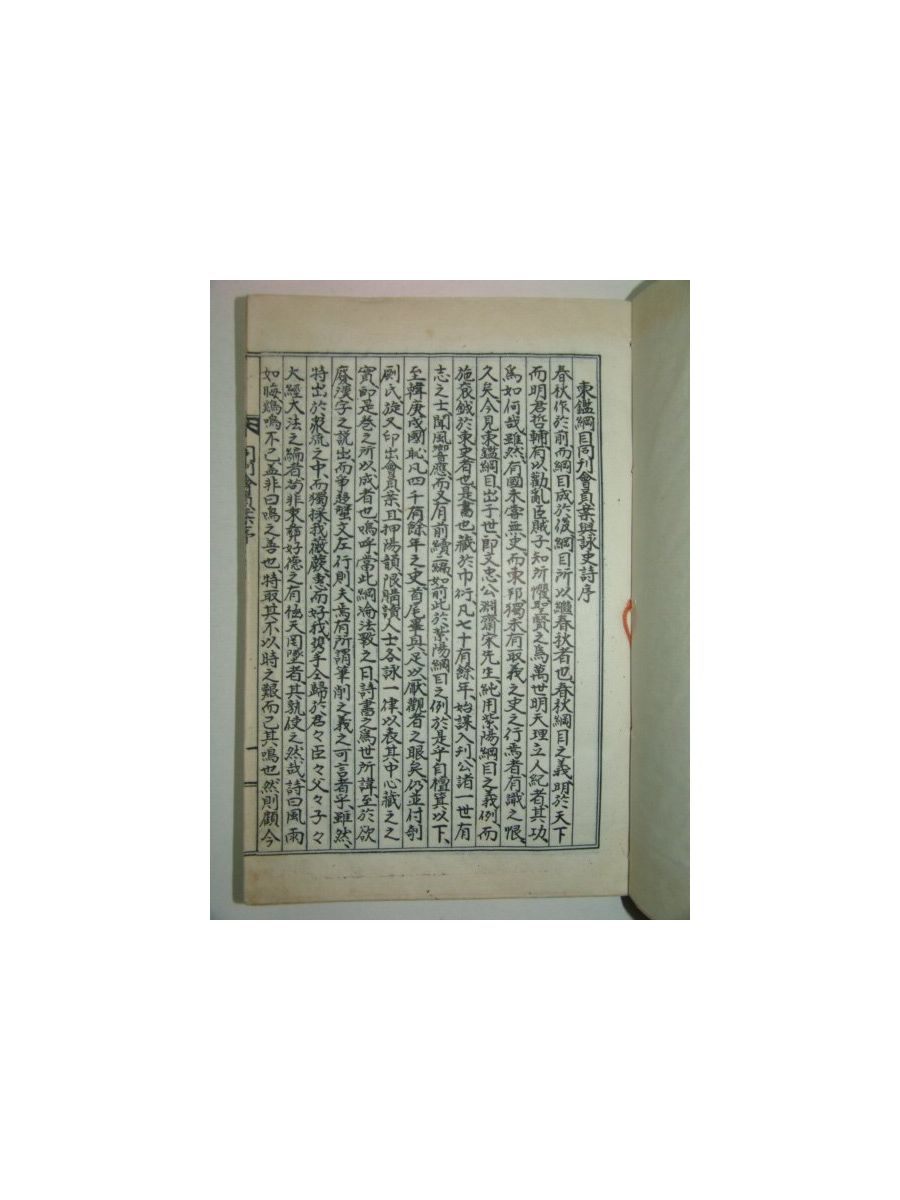 東鑑綱目同刊會員案與詠史詩序
春秋作於前而綱目成於後綱目所以繼春秋者也春秋綱目之義明於天下
而明君哲輔有以勸亂臣賊子知所懼聖賢之爲萬世明天理立人紀者其功
爲如何哉雖然有國未嘗無史而東邦獨未有取義之史之行焉者有識之恨
久矣今見東鑑綱目出于世卽文忠公淵齋宋先生純用紫陽綱目之義例而
施袞鉞於東史者也是書也藏於巾衍凡七十有餘年始謀入刊公諸一世有
志之士聞風響應而又有前續二編如前此於紫陽綱目之例於是乎自檀箕以下
至韓庚戌國恥凡四千有餘年之史首尾畢具足以厭觀者之眼矣仍並付剞
劂氏旋又印出會員案且押陽韻限購讀人士各詠一律以表其中心藏之之
實卽是卷之所以成者也嗚呼當此綱淪法斁之日詩書之爲世所諱至於欲
廢漢字之說出而爭趍蟹文左行則夫焉有所謂筆削之義之可言者乎雖然
特出於衆流之中而獨採我薇蕨惠而好我携手仝歸於君々臣々父々子々
大經大法之編者苟非秉彛好德之有極天罔墜者其孰使之然哉詩曰風雨
如晦鷄鳴不已盖非曰鳴之善也特取其不以時之艱而已其鳴也然則顧今